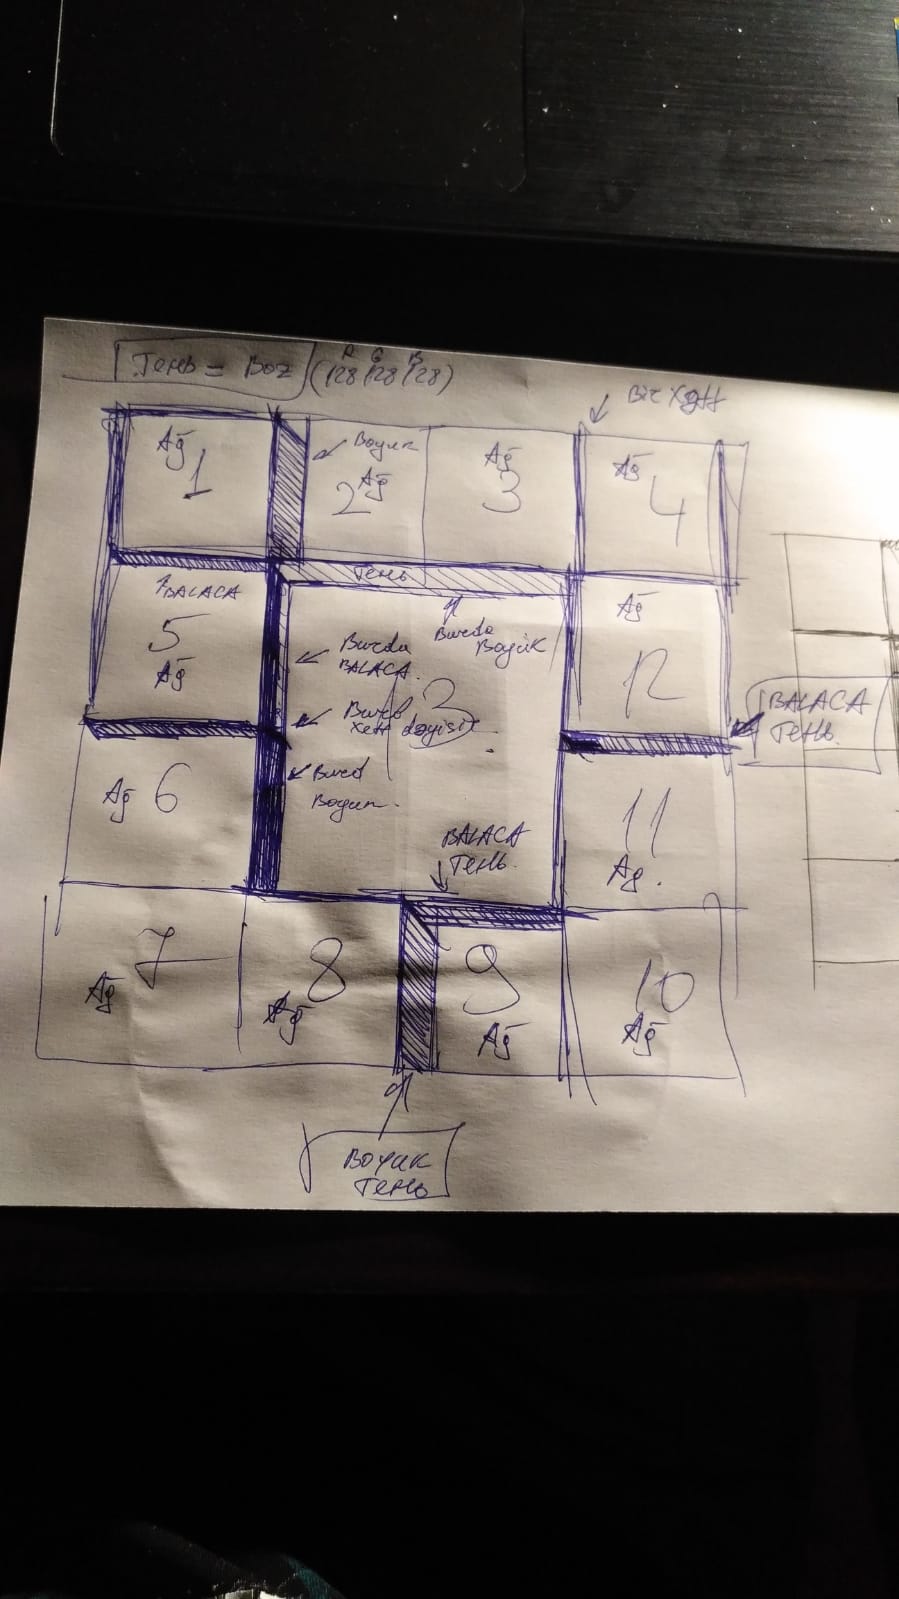 Тень = Boz (128 128 128)
R G B
Bir Xətt
Ağ
1
Boyuk
2 Ağ
Ağ
3
Ağ
4
Тень
BALACA
5
Ağ
Burda
BALACA.
Burda
Boyük
Ağ
12
Burda
xətt dəyisir
3
BALACA
Тень.
Ağ 6
Burd
Boyuk.
BALACA
Тень.
11
Ağ.
7
Ağ
8
Ağ
9
Ağ
10
Ağ
BOYUK
Тень